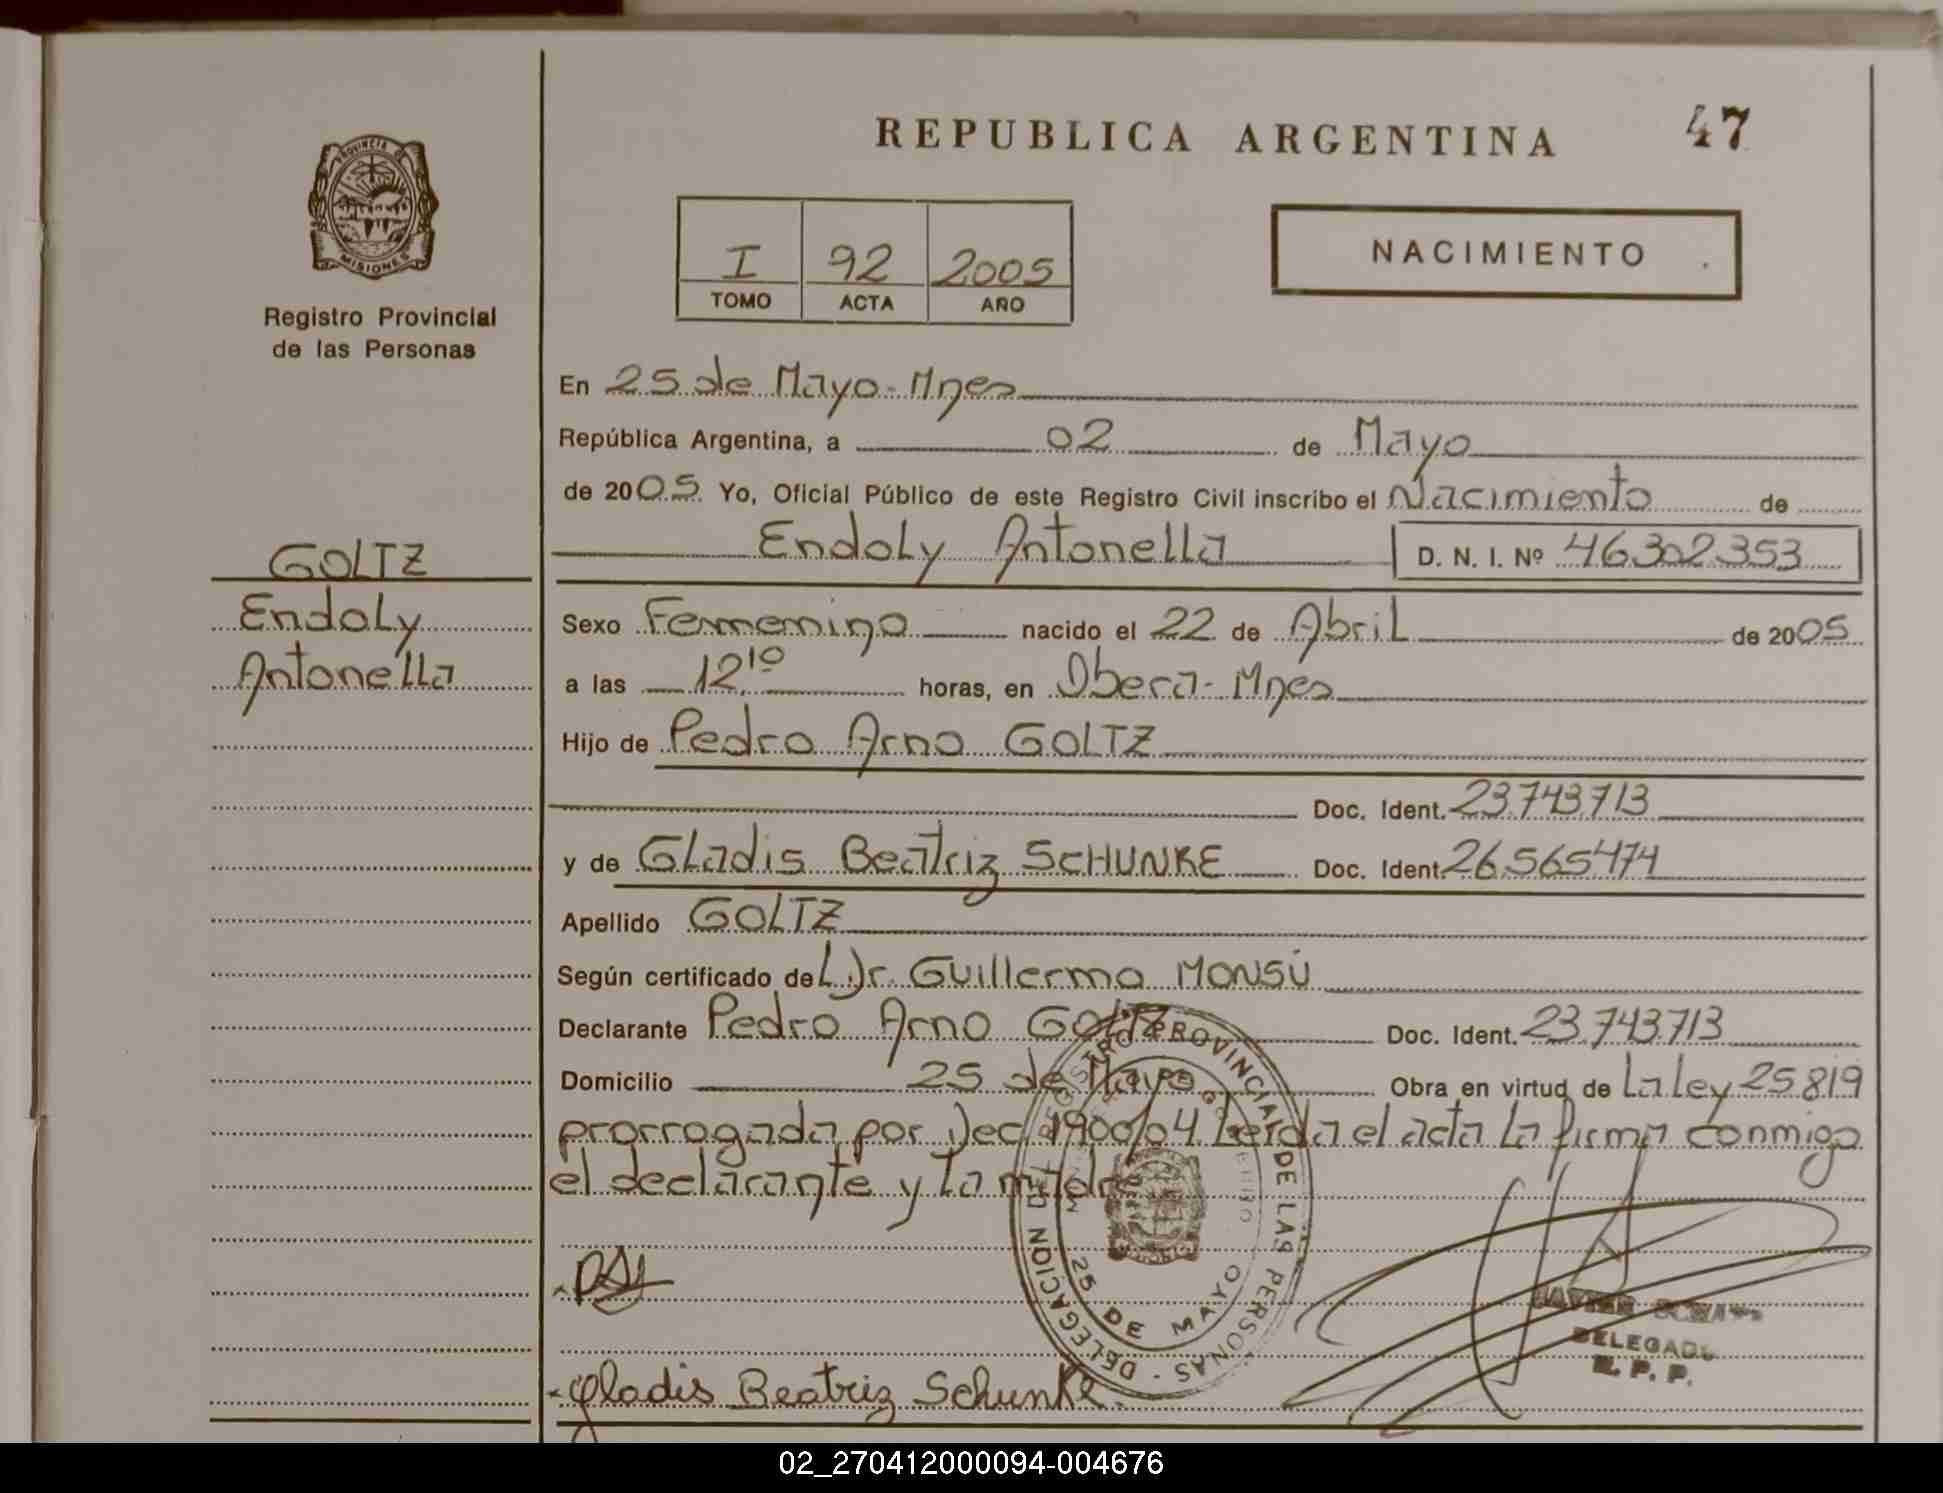 REPUBLICA ARGENTINA
47
PROVINCIA DE
MISIONES
Registro Provincial
de las Personas
I 92 2005
TOMO ACTA AÑO
NACIMIENTO
En 25 de Mayo-Mnes
República Argentina, a 02 de Mayo
de 2005 Yo, Oficial Público de este Registro Civil inscribo el Nacimiento de
Endoly Antonella D. N. I. Nº 46302353
GOLTZ
Endoly
Antonella
Sexo Femenino nacido el 22 de Abril de 2005
a las 12,10 horas, en Obera-Mnes
Hijo de Pedro Arno GOLTZ
Doc. Ident. 23.743.713
y de Gladis Beatriz SCHUNKE Doc. Ident. 26.565474
Apellido GOLTZ
Según certificado del Dr. Guillermo MONSÚ
Declarante Pedro Arno GOLTZ Doc. Ident. 23.743.713
Domicilio 25 de Mayo Obra en virtud de La ley 25819
prorrogada por Dec. 1900/04 Leida el acta la firma conmigo
el declarante y la madre
DELEGACION DEL REGISTRO PROVINCIAL DE LAS PERSONAS
25 DE MAYO
DELEGADO
R. P. P.
Gladis Beatriz Schunke
02_270412000094-004676